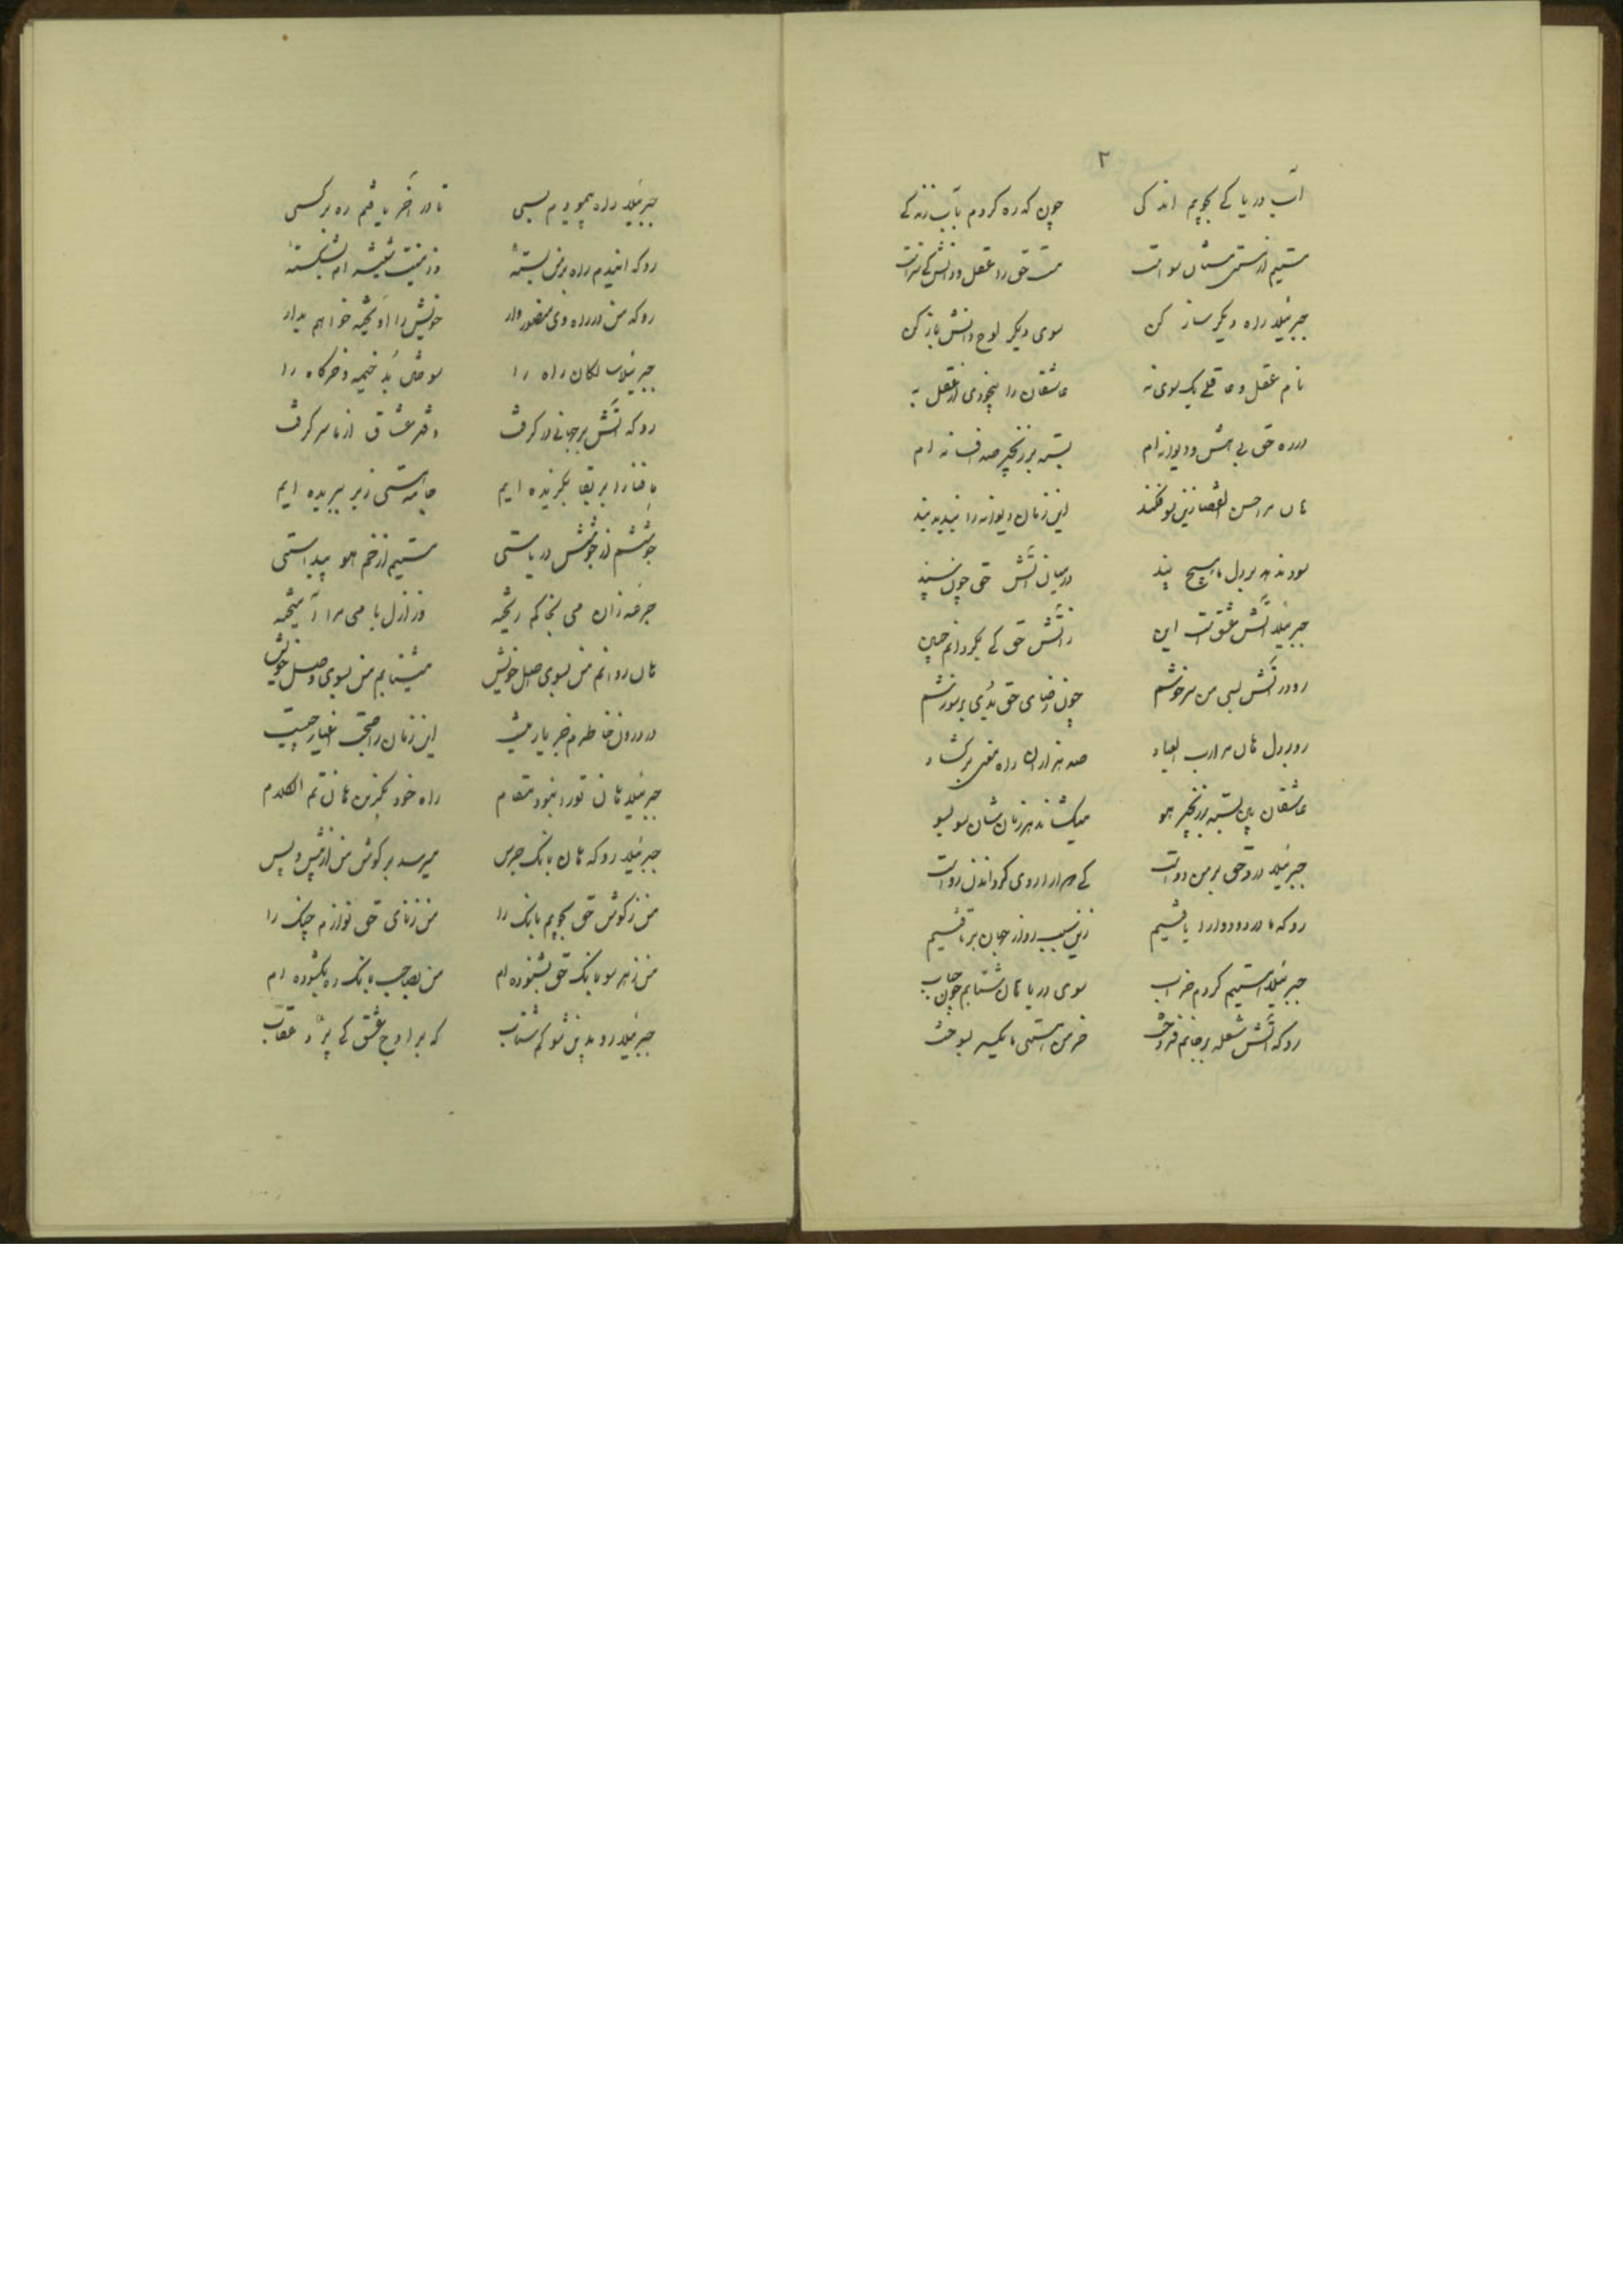 ۲
آب دریا کے بجویم اندکی چون که ره کردم بآب زندکے
مستیم از مستی مستان سواست مست حق رد عقل و دانش کے
جبرئیلا راه دیگر ساز کن سوی دیگر لوح دانش باز کن
نام عقل و عاقلے یک سوی نه عاشقان را بیخودی از عقل به
در ره حق بی هش و دیوانه ام بسته بر زنجیر صد افسانه ام
هان مرا حسن القضا زین سو فکند این زمان دیوانه را بندید بند
سود ندهد بر دل ما هیچ پند در میان آتش حق چون سپند
جبرئیلا آتش عشق است این ز آتش حق کے بگردانم جبین
رو در آتش بسی من سرخوشم چون رضای حق بدی بر سوزشم
رو بر دل هان مرا رب العباد صد هزاران راه معنی بر گشاد
عاشقان پی بسته بر زنجیر هو میکشاند هر زمان شان سو بسو
جبرئیلا درد حق بر من دواست کے مرا را روی گرداندن رواست
رو که ما درد و دوا را یافتیم زین سبب رو از جهان بر تافتیم
جبرئیلا مستیم کردم خراب سوی دریا هان شتابم چون حباب
رو که آتش شعله بر جانم فروخت خرمن هستی ما یکسر بسوخت
جبرئیلا راه پیمودم بسی تا در آخر یافتم ره بر کسی
رو که اندیدم راه بر من بسته وز منیت شیشه ام بشکسته
رو که من در راه وی منصور وار خویش را آویخته خواهم بدار
جبرئیلا سالکان راه را سوختن بد خیمه و خرگاه را
رو که آتش بر جهانی در گرفت دفتر عشاق از ما سر گرفت
ما فنا را بر بقا بگزیده ایم جامه هستی ز بر ببریده ایم
جوششم از جوشش دریاستی مستیم از خم هو پیداستی
جرعه زان می بخاکم ریخته وز ازل با می مرا آمیخته
هان روانم من بسوی اصل خویش میشتابم من بسوی وصل خویش
در درون خاطرم جز یار نیست این زمان صحبت اغیار چیست
جبرئیلا هان تو را نبود مقام راه خود بگزین هان تم الکلام
جبرئیلا رو که هان بانک جرس میرسد بر گوش من از پیش و پس
من ز گوش حق بجویم بانک را من ز نای حق نوازم چنک را
من ز هر سو بانک حق بشنوده ام من بصاحب بانک ره بگشوده ام
جبرئیلا رو بدین سو کم شتاب که بر اوج عشق کے پرد عقاب